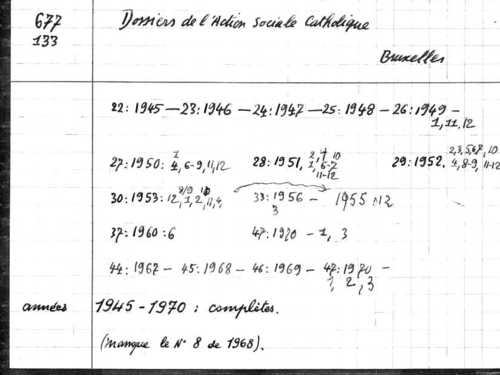 677
133
Dossiers de l'Action Sociale Catholique
Bruxelles
22: 1945 — 23: 1946 — 24: 1947 — 25: 1948 — 26: 1949 —
1, 11, 12
27: 1950: 4, 6-9, 11, 12 28: 1951, 29: 1952,
30: 1953: 33: 1956 — 1955 : 12
3
37: 1960 : 6 47: 1970 — 1, 3
44: 1967 — 45: 1968 — 46: 1969 — 47: 1970 —
1, 2, 3
années 1945-1970 : complètes.
(manque le N° 8 de 1968).